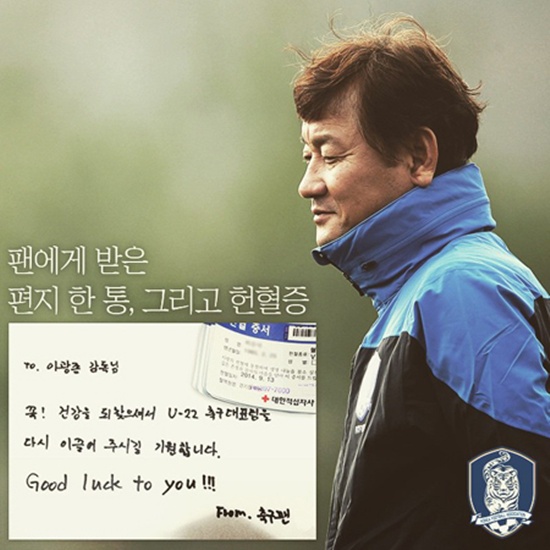 팬에게 받은
편지 한 통, 그리고 헌혈증
헌혈 증서
2014. 9. 13
대한적십자사
To. 이광종 감독님
꼭! 건강을 되찾으셔서 U-22 축구대표팀을
다시 이끌어 주시길 기원합니다.
Good luck to you!!!
From. 축구팬
KOREA FOOTBALL ASSOCIATION